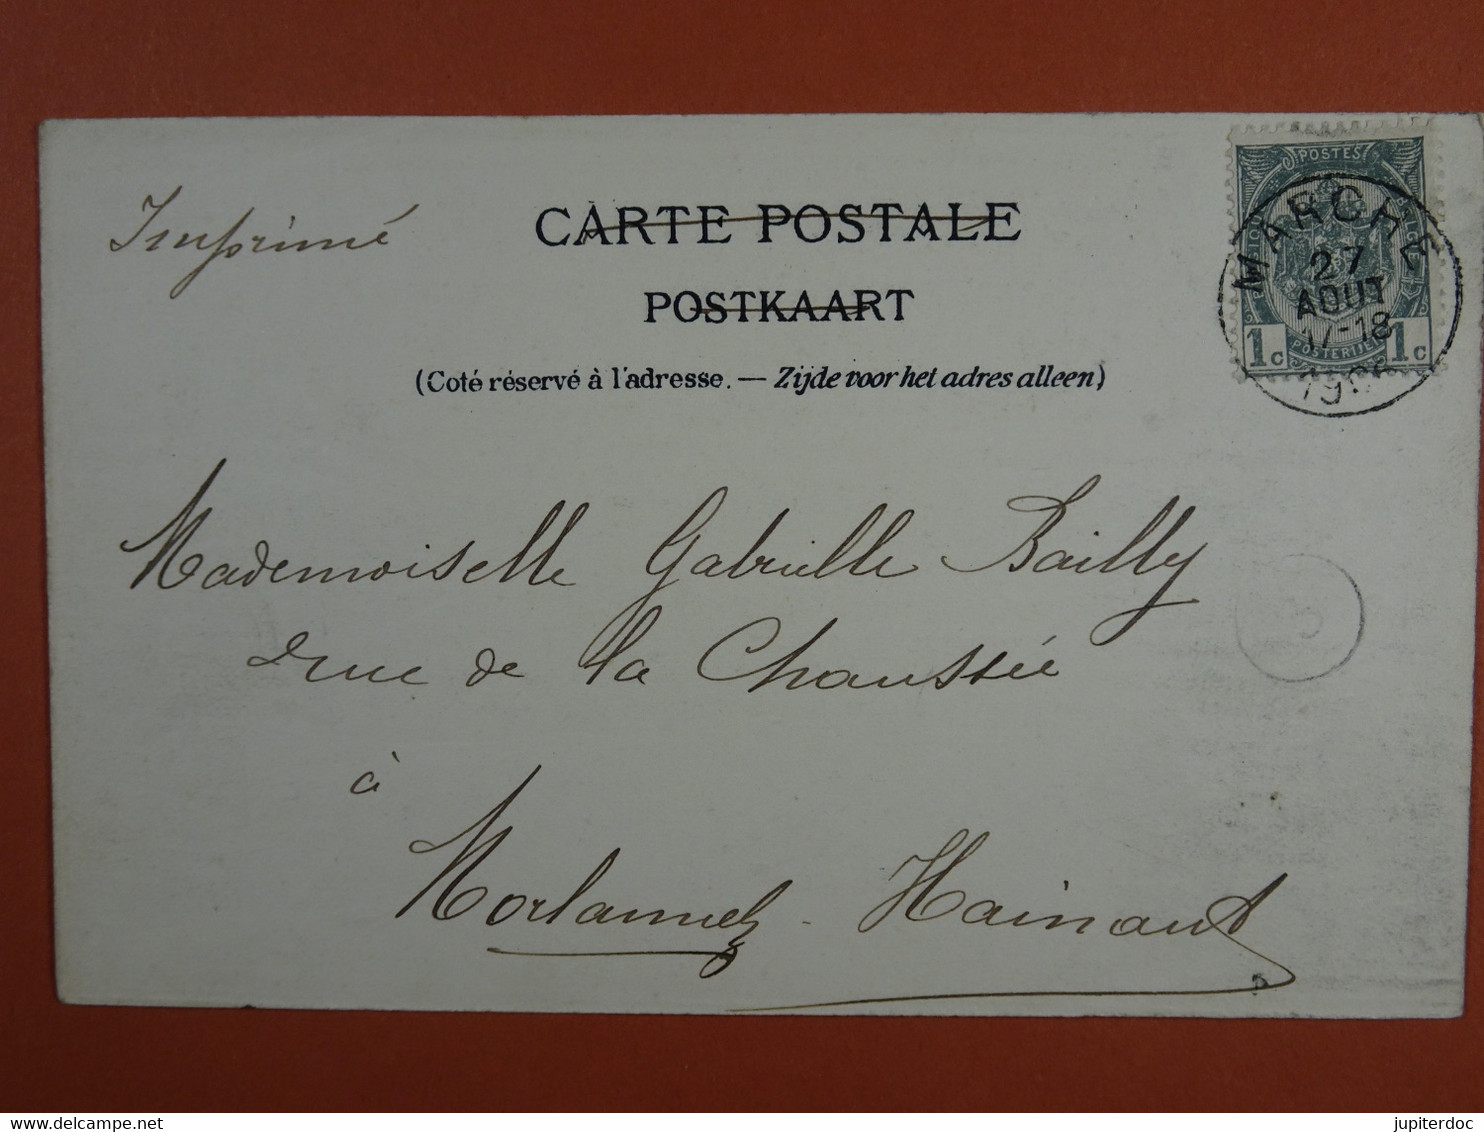 Imprimé
CARTE POSTALE
POSTKAART
(Coté réservé à l'adresse. — Zijde voor het adres alleen)
POSTES
MARCHE
27
AOUT
17-18
1c 1c
POSTERIJEN
Mademoiselle Gabrielle Bailly
rue de la Chaussée
à
Morlanwelz - Hainaut
delcampe.net
jupiterdoc